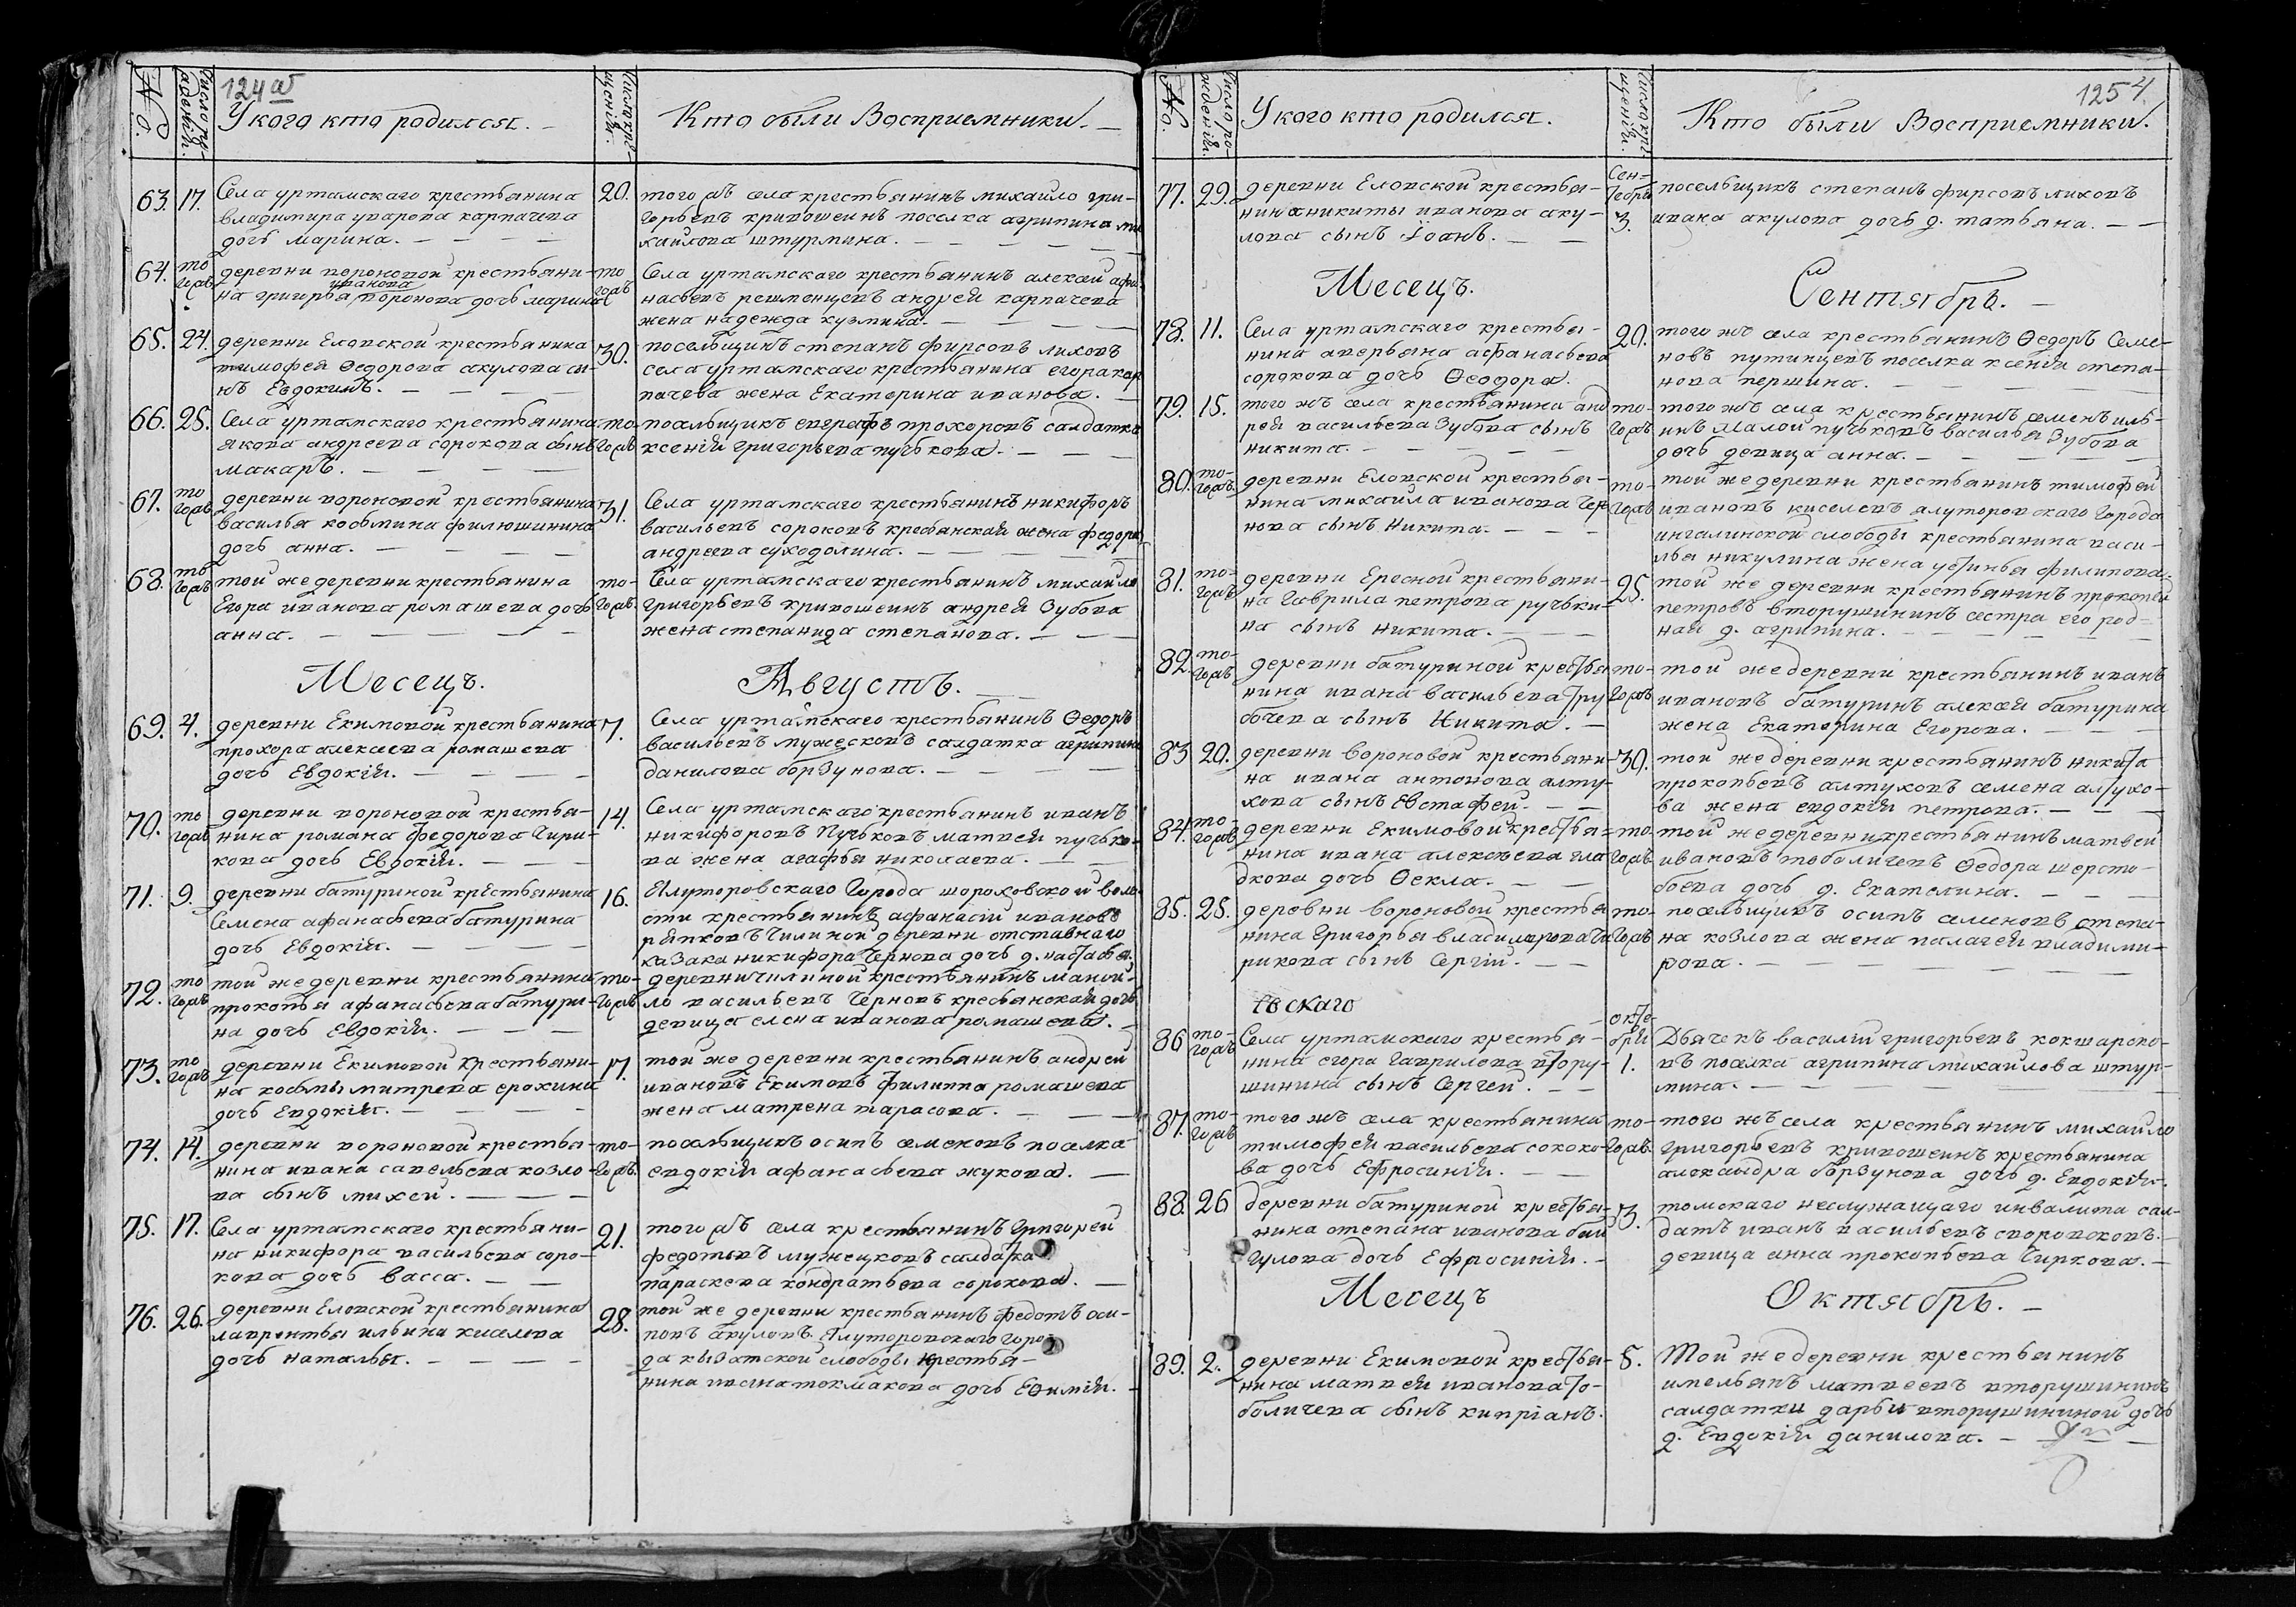 124 а
№. Число рожденiя. У кого кто родился. Число крещенiя. Кто были Восприемники.
63. 17. Села уртамскаго крестьянина
владимира уварова карпачева
дочь марина.
20. того жъ села крестьянинъ михайло гри-
горьевъ кривошеинъ поселка агрипина ми
хаилова штурмина.
64. то гожъ деревни вороновой крестьяни-
ивановa
на григорья воронова дочь марина
то гожъ Села уртамскаго крестьянинъ алексей афа
насьевъ решменцевъ андрея карпачева
жена надежда кузмина.
65. 24. деревни Еловской крестьянина
тимофея Ѳедорова акулова сы-
нъ Евдокимъ.
30. посельщикъ степанъ фирсовъ лиховъ
села уртамскаго крестьянина егора кар
пачева жена Екатерина иванова.
66. 25. Села уртамскаго крестьянина
якова андреева сорокова сынъ
макаръ.
то гожъ посельщикъ евграфъ прохоровъ салдатка
ксенiя григорьева пучькова.
67. то гожъ деревни вороновой крестьянина
василья косьмина филюшинина
дочь анна.
31. Села уртамскаго крестьянинъ никифоръ
васильевъ сороковъ кресьянская жена федора
андреева суходолина.
68. то гожъ той же деревни крестьянина
Егора иванова ромашева дочь
анна.
то гожъ. Села уртамскаго крестьянинъ михайло
григорьевъ кривошеинъ андрея Зубова
жена степанида степанова.
Месецъ. Августъ.
69. 4. деревни Екимовой крестьянина
прохора алексеева ромашева
дочь Евдокiя.
7. Села уртамскаго крестьянинъ Ѳедоръ
васильевъ мужесковъ салдатка агрипина
данилова борзунова.
70. то гожъ деревни вороновой крестья-
нина романа федорова Чири-
кова дочь Евдокiя.
14. Села уртамскаго крестьянинъ иванъ
никифоровъ Пучьковъ матвея пучько-
ва жена агафья николаева.
71. 9. деревни батуриной крестьянина
Семена афанасьева батурина
дочь Евдокiя.
16. Ялуторовскаго Города шороховской воло
сти крестьянинъ афанасiй ивановъ
ряпковъ Чилиной деревни отставнаго
казака никифора Чернова дочь д. настасья.
72. то гожъ той же деревни крестьянина
прокопья афанасьева батури-
на дочь Евдокiя.
то гожъ деревни чилиной крестьянинъ маной-
ло васильевъ Черновъ кресьянская дочь
девица елена иванова ромашева.
73. то гожъ деревни Екимовой крестьяни-
на косьмы митрева ерохина
дочь Евдокiя.
17. той же деревни крестьянинъ андрей
ивановъ Екимовъ филиппа ромашева
жена матрена тарасова.
74. 14. деревни вороновой крестья-
нина ивана савельева козло-
ва сынъ михей.
то гожъ. посельщикъ осипъ семеновъ поселка
евдокiя афанасьева жукова.
75. 17. Села уртамскаго крестьяни-
на никифора васильева соро-
кова дочь васса.
21. того жъ села крестьянинъ Григорей
федотовъ мужецковъ салдатка
параскева кондратьева сорокова.
76. 26. деревни Еловской крестьянина
лаврентья ильина киселева
дочь наталья.
28. той же деревни крестьянинъ федотъ оси-
повъ акуловъ. Ялуторовскаго горо-
да кызатской слободы крестья-
нина ивана токмакова дочь Еѳимiя.
125 4
№. Число рожденiя. У кого кто родился. Число крещенiя. Кто были Восприемники.
77. 29. деревни Еловской крестья-
нина никиты иванова аку-
лова сынъ iоанъ.
Сен-
тебря
3. посельщикъ степанъ фирсовъ лиховъ
ивана акулова дочь д. татьяна.
Месецъ. Сентябрь.
78. 11. Села уртамскаго крестья-
нина аверьяна афанасьева
сорокова дочь Ѳеодора.
20. того жъ села крестьянинъ Ѳедоръ Семе-
новъ путинцевъ поселка ксенiя степа-
нова першина.
79. 15. того жъ села крестьянина анд
рея васильева Зубова сынъ
никита.
то-гожъ того жъ села крестьянинъ семенъ иль-
инъ Малой пучьковъ василья Зубова
дочь девица анна.
80. то-гожъ. деревни Еловской крестья-
нина михаила иванова Чер
нова сынъ Никита.
то-гожъ той же деревни крестьянинъ тимофей
ивановъ киселевъ алуторовскаго Города
ингалинской слободы крестьянина васи-
лья никулина жена устинья филипова.
81. то-гожъ деревни Ересной крестьяни-
на Гаврила петрова ручьки-
на сынъ никита.
25. той же деревни крестьянинъ прокопей
петровъ вторушининъ сестра его род-
ная д. агрипина.
82. то-гожъ деревни батуриной крестья
нина ивана васильева тру
бочева сынъ Никита.
то-гожъ той же деревни крестьянинъ иванъ
ивановъ батуринъ алексея батурина
жена Екатерина Егорова.
83 20. деревни вороновой крестьяни-
на ивана антонова алту-
хова сынъ Евстафей.
30. той же деревни крестьянинъ никита
прокопьевъ алтуховъ семена алтухо-
ва жена евдокiя петрова.
84. то-гожъ деревни Екимовой крестья-
нина ивана алексеева гла
дкова дочь Ѳекла.
то-гожъ. той же деревни крестьянинъ матвей
ивановъ тоболичевъ Ѳедора шерсто-
боева дочь д. Екателина.
85. 25. деревни вороновой крестья
нина Григорья владимирова Чи
рикова сынъ Сергiй.
то-гожъ посельщикъ осипъ семеновъ степа-
на козлова жена палагея владими-
рова.
евскаго
86 то-гожъ Села уртамскаго крестья-
нина егора Гаврилова втору-
шинина сынъ Сергей.
октe-
бря
1. Дьячекъ василiй григорьевъ кокшарско-
въ поселка агрипина михаилова штур-
мина.
87. то-гожъ того жъ села крестьянина
тимофея васильева соколо-
ва дочь Ефросинiя.
то-гожъ. того жъ села крестьянинъ михайло
Григорьевъ кривошеинъ крестьянина
александра борзунова дочь д. Евдокiя.
88. 26 деревни батуриной крестья-
нина степана иванова бай
гулова дочь Ефросинiя.
3. томскаго неслужащаго инвалита сал-
датъ иванъ васильевъ споровсковъ.
девица анна прокопьева Чиркова.
Месецъ Октябрь.
89. 2. деревни Екимовой крестья-
нина матвея иванова то-
боличева сынъ киприанъ.
5. Той же деревни крестьянинъ
имельянъ матвеевъ вторушининъ
салдатки дарьи вторушининой дочь
д. Евдокiя данилова.